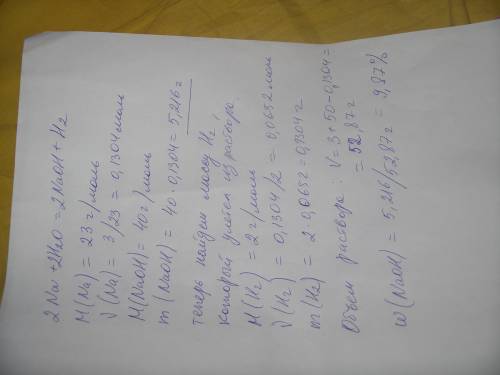 2Na + 2H2O = 2NaOH + H2
M(Na) = 23 г/моль
√(Na) = 3/23 = 0,1304 моль
M(NaOH) = 40 г/моль
m(NaOH) = 40·0,1304 = 5,216 г
теперь найдем массу H2,
который улетел из раствора.
M(H2) = 2 г/моль
√(H2) = 0,1304/2 = 0,0652 моль
m(H2) = 2·0,0652 = 0,1304 г
Объем раствора: V = 3 + 50 - 0,1304 =
= 52,87 г
w(NaOH) = 5,216/52,87 г = 9,87%